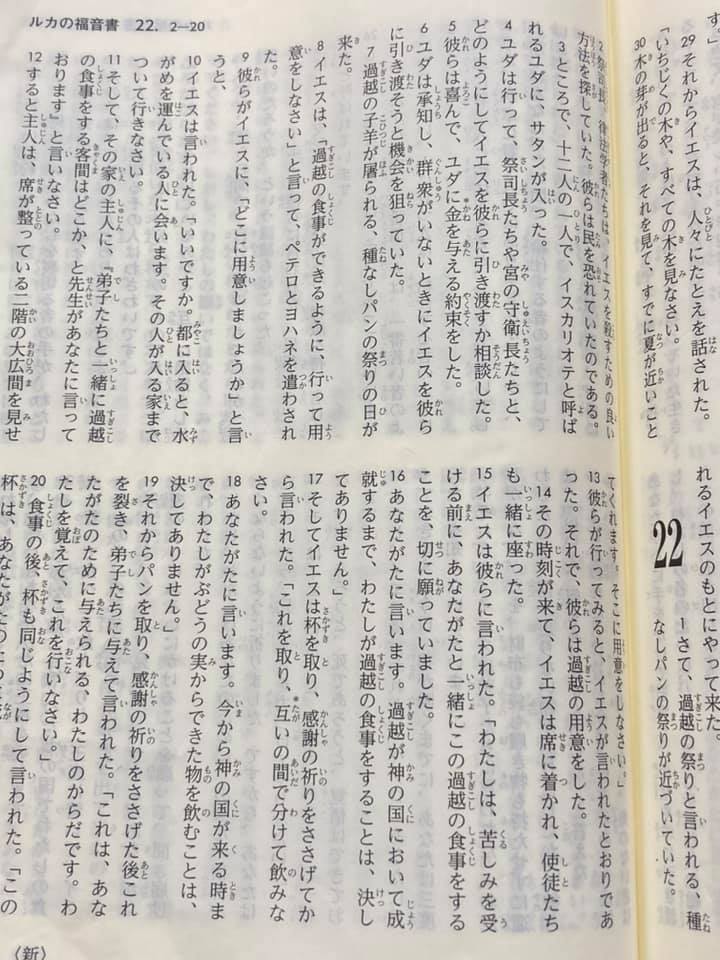 ルカの福音書 22. 2—20
す。」
29 それからイエスは、人々にたとえを話された。
「いちじくの木や、すべての木を見なさい。
30 木の芽が出ると、それを見て、すでに夏が近いこと
れるイエスのもとにやって来た。
22
1 さて、過越の祭りと言われる、種
なしパンの祭りが近づいていた。
2 祭司長、律法学者たちは、イエスを殺すための良い
方法を探していた。彼らは民を恐れていたのである。
3 ところで、十二人の一人で、イスカリオテと呼ば
れるユダに、サタンが入った。
4 ユダは行って、祭司長たちや宮の守衛長たちと、
どのようにしてイエスを彼らに引き渡すか相談した。
5 彼らは喜んで、ユダに金を与える約束をした。
6 ユダは承知し、群衆がいないときにイエスを彼ら
に引き渡そうと機会を狙っていた。
7 過越の子羊が屠られる、種なしパンの祭りの日が
来た。
8 イエスは、「過越の食事ができるように、行って用
意をしなさい」と言って、ペテロとヨハネを遣わされ
た。
9 彼らがイエスに、「どこに用意しましょうか」と言
うと、
10 イエスは言われた。「いいですか。都に入ると、水
がめを運んでいる人に会います。その人が入る家まで
ついて行きなさい。
11 そして、その家の主人に、『弟子たちと一緒に過越
の食事をする客間はどこか、と先生があなたに言って
おります』と言いなさい。
12 すると主人は、席が整っている二階の大広間を見せ
てくれます。そこに用意をしなさい。」
13 彼らが行ってみると、イエスが言われたとおりであ
った。それで、彼らは過越の用意をした。
14 その時刻が来て、イエスは席に着かれ、使徒たち
も一緒に座った。
15 イエスは彼らに言われた。「わたしは、苦しみを受
ける前に、あなたがたと一緒にこの過越の食事をする
ことを、切に願っていました。
16 あなたがたに言います。過越が神の国において成
就するまで、わたしが過越の食事をすることは、決し
てありません。」
17 そしてイエスは杯を取り、感謝の祈りをささげてか
ら言われた。「これを取り、*互いの間で分けて飲みな
さい。
18 あなたがたに言います。今から神の国が来る時ま
で、わたしがぶどうの実からできた物を飲むことは、
決してありません。」
19 それからパンを取り、感謝の祈りをささげた後これ
を裂き、弟子たちに与えて言われた。「これは、あな
たがたのために与えられる、わたしのからだです。わ
たしを覚えて、これを行いなさい。」
20 食事の後、杯も同じようにして言われた。「この
杯は、あなたがたのため
〈新〉